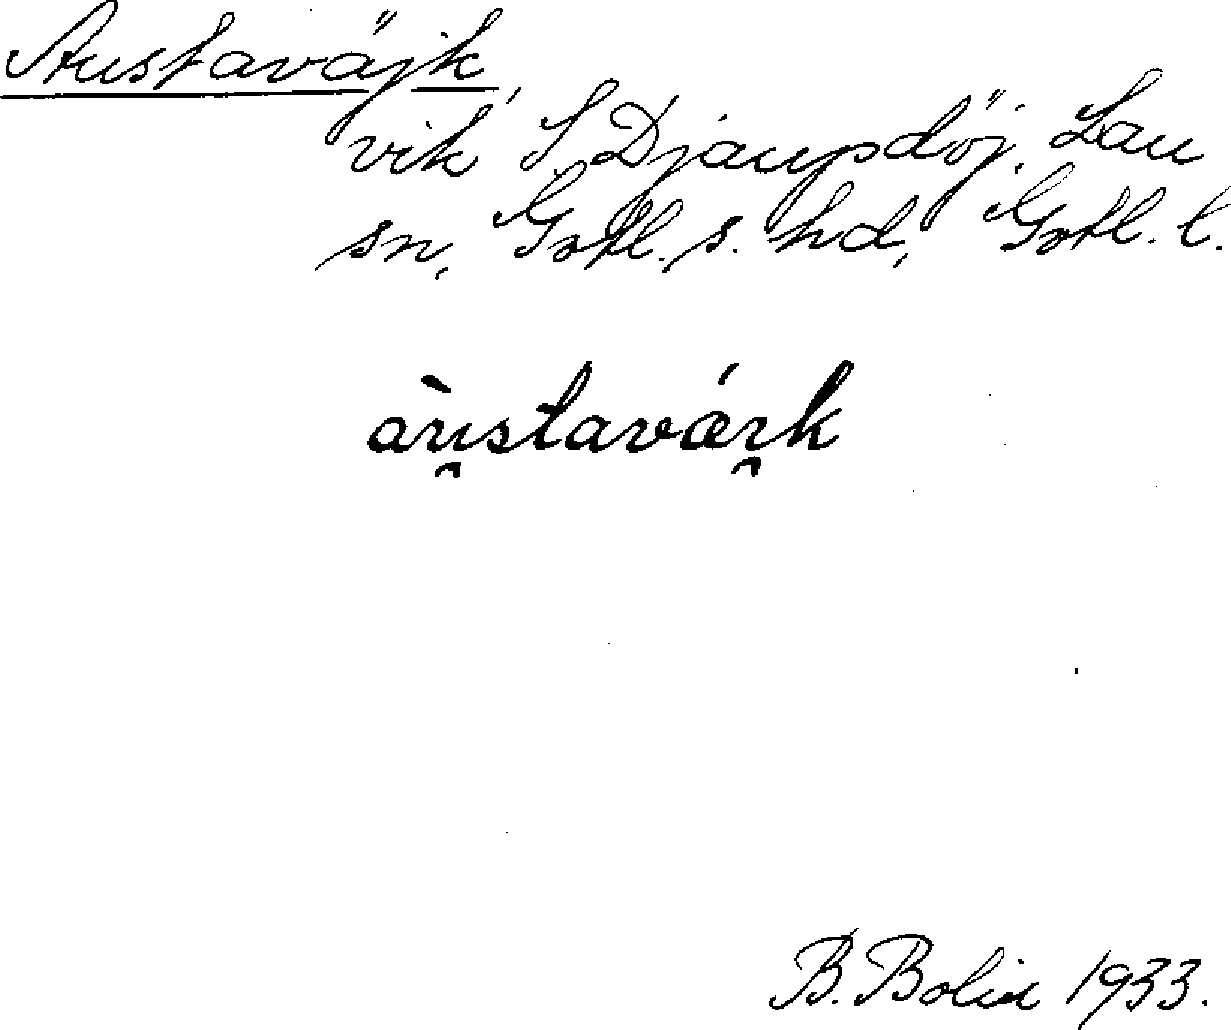 Austaväjk,
vik S Djaupdöj, Lau
sn, Gotl. s. hd, Gotl. l.
àu̯stavǽi̯k
B. Bolin 1933.